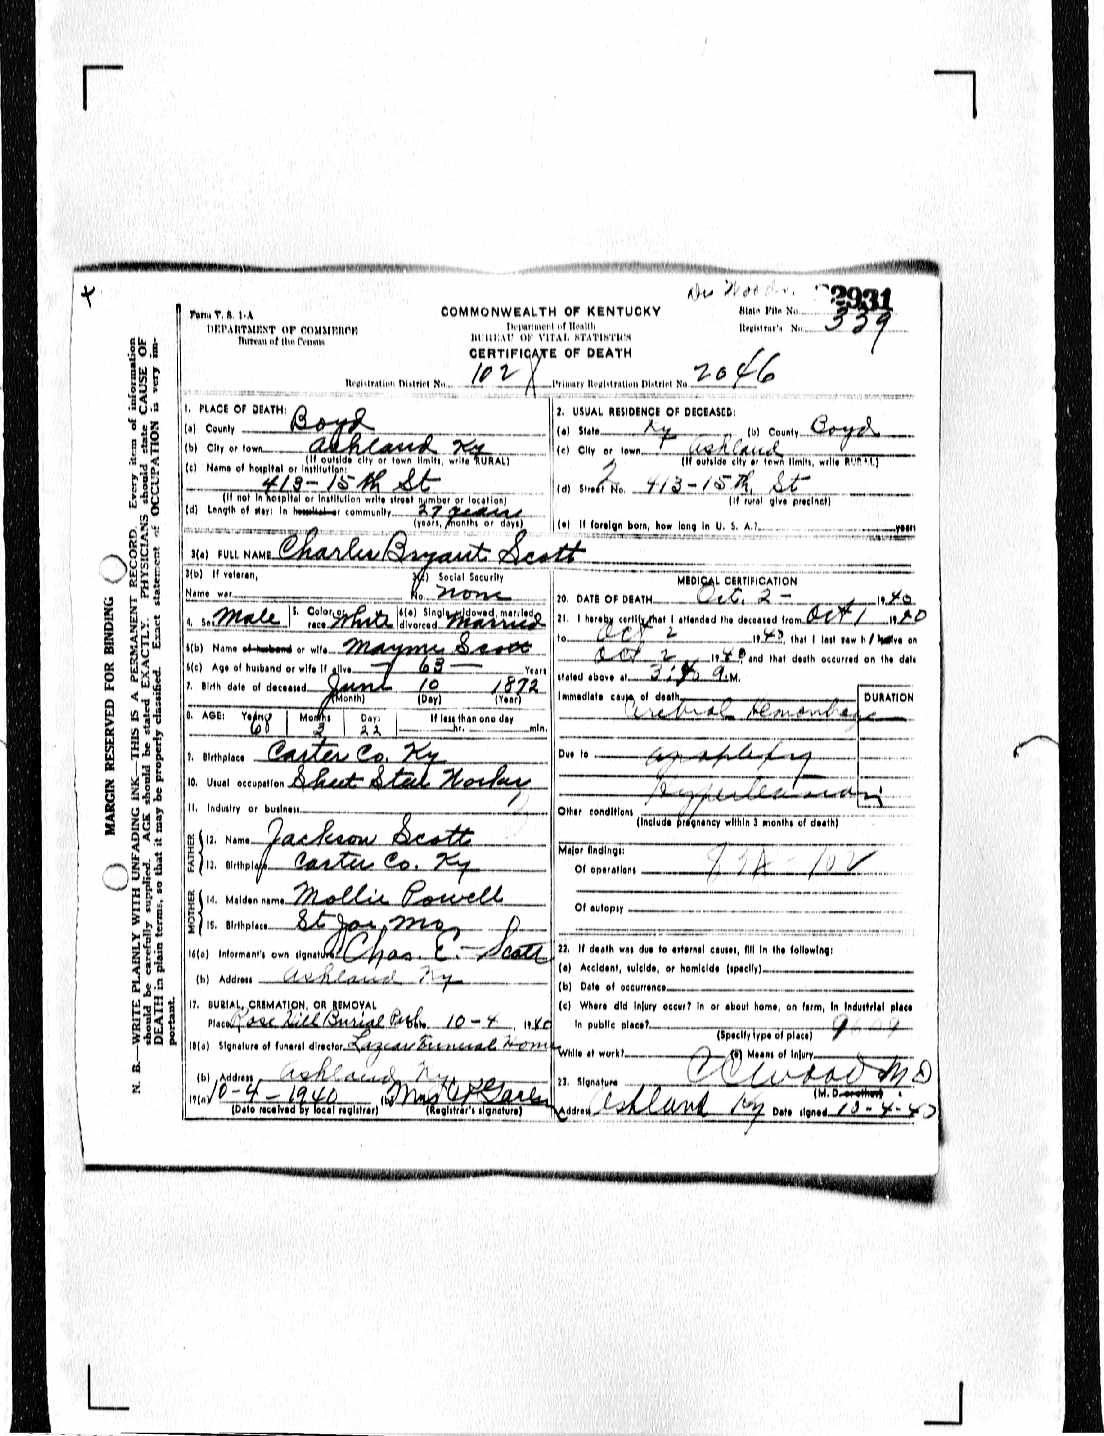 Form V. S. 1-A
DEPARTMENT OF COMMERCE
Bureau of the Census
COMMONWEALTH OF KENTUCKY
Department of Health
BUREAU OF VITAL STATISTICS
CERTIFICATE OF DEATH
State File No. 22931
Registrar's No. 339
Registration District No. 102 Primary Registration District No. 2046
MARGIN RESERVED FOR BINDING
N. B.—WRITE PLAINLY WITH UNFADING INK—THIS IS A PERMANENT RECORD. Every item of information
should be carefully supplied. AGE should be stated EXACTLY. PHYSICIANS should state CAUSE OF
DEATH in plain terms, so that it may be properly classified. Exact statement of OCCUPATION is very im-
portant.
1. PLACE OF DEATH:
(a) County Boyd
(b) City or town Ashland Ky
(If outside city or town limits, write RURAL)
(c) Name of hospital or institution:
413-15th St
(If not in hospital or institution write street number or location)
(d) Length of stay: In hospital or community 27 years
(years, months or days)
2. USUAL RESIDENCE OF DECEASED:
(a) State Ky (b) County Boyd
(c) City or town Ashland
(If outside city or town limits, write RURAL)
(d) Street No. 413-15th St
(If rural give precinct)
(e) If foreign born, how long in U. S. A.? years
3(a) FULL NAME Charles Bryant Scott
3(b) If veteran,
Name war
3(c) Social Security
No. none
4. Sex Male 5. Color or race White 6(a) Single, widowed, married, divorced Married
6(b) Name of husband or wife Mayme Scott
6(c) Age of husband or wife if alive 63 Years
7. Birth date of deceased June 10 1872
(Month) (Day) (Year)
8. AGE: Years 68 Months 3 Days 22 If less than one day
hr. min.
9. Birthplace Carter Co. Ky
10. Usual occupation Sheet Steel Worker
11. Industry or business
FATHER
12. Name Jackson Scott
13. Birthplace Carter Co. Ky
MOTHER
14. Maiden name Mollie Powell
15. Birthplace St Joe, Mo
16(a) Informant's own signature Chas. E. Scott
(b) Address Ashland Ky
17. BURIAL, CREMATION, OR REMOVAL
Place Rose Hill Burial Park 10-4, 1940
18(a) Signature of funeral director Lazear Funeral Home
(b) Address Ashland Ky
19(a) 10-4-1940 (b) Mrs
(Date received by local registrar) (Registrar's signature)
MEDICAL CERTIFICATION
20. DATE OF DEATH Oct. 2- 1940
21. I hereby certify that I attended the deceased from Oct 1 1940
to Oct 2 1940, that I last saw h alive on
Oct 2 1940 and that death occurred on the date
stated above at A.M.
Immediate cause of death DURATION
Cerebral Hemorrhage
Due to apoplexy
Hypertension
Other conditions
(Include pregnancy within 3 months of death)
Major findings:
Of operations
Of autopsy
22. If death was due to external causes, fill in the following:
(a) Accident, suicide, or homicide (specify)
(b) Date of occurrence
(c) Where did injury occur? In or about home, on farm, in industrial place
in public place?
(Specify type of place)
While at work? (e) Means of injury
23. Signature C C Wood M D
(M. D. or other)
Address Ashland Ky Date signed 10-4-40